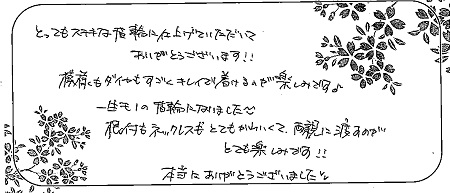 とってもステキな指輪に仕上げていただいて
ありがとうございます!!
模様もダイヤもすごくキレイで着けるのが楽しみです♪
一生モノの指輪になりました
根付もネックレスもとてもかわいくて、両親に渡すのが
とても楽しみです!!
本当にありがとうございました